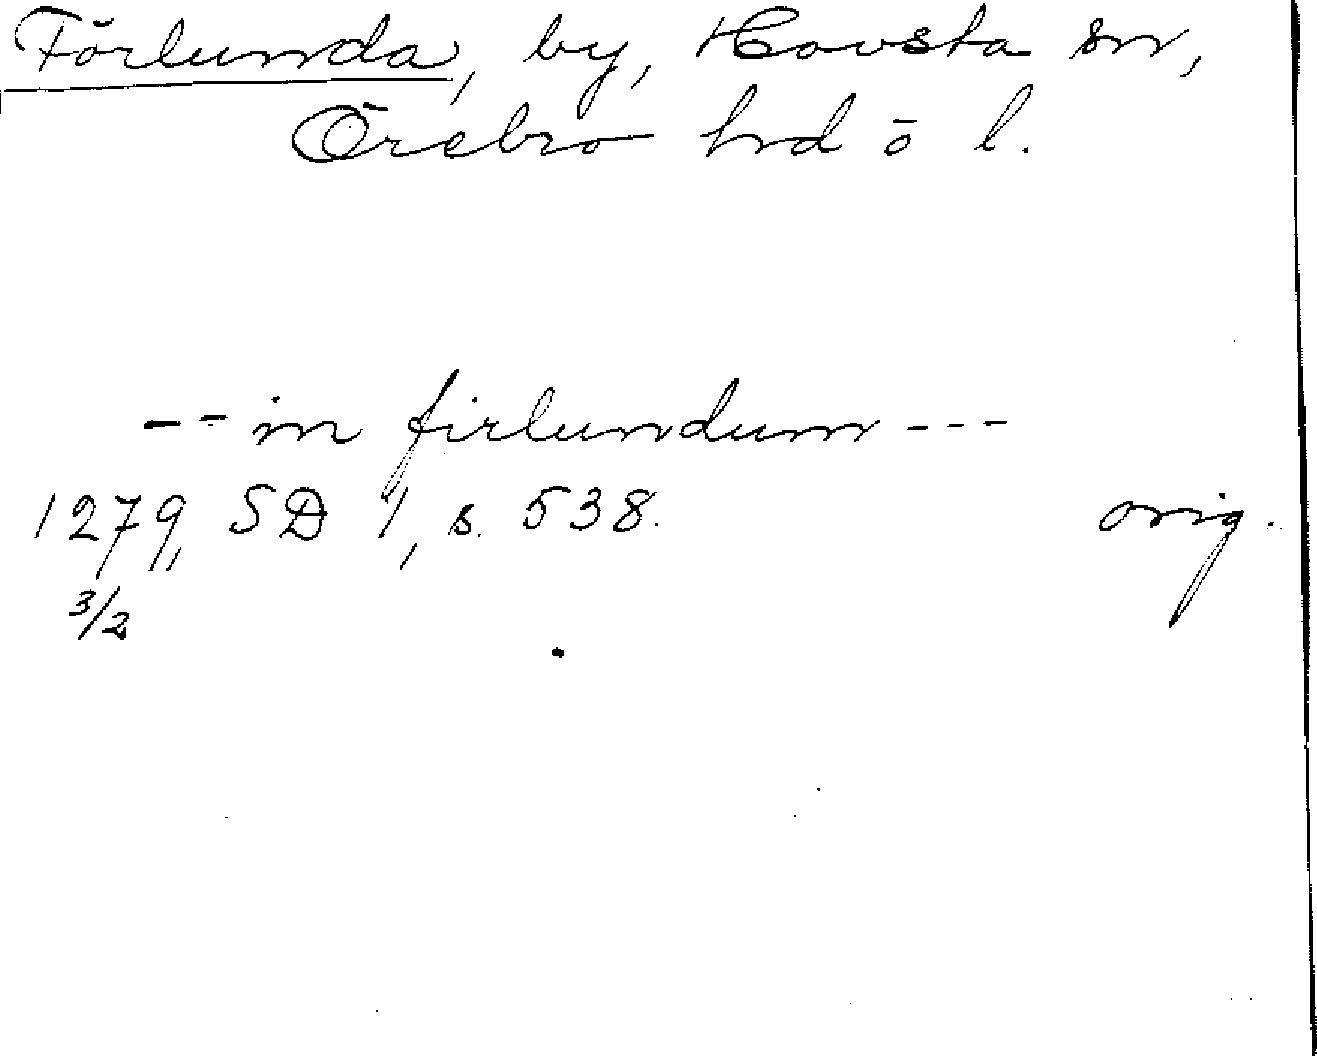 Förlunda, by, Hovsta sn,
Örebro hrd ō l.
-- in firlundum ---
1279, SD 1, s. 538. orig.
3/2